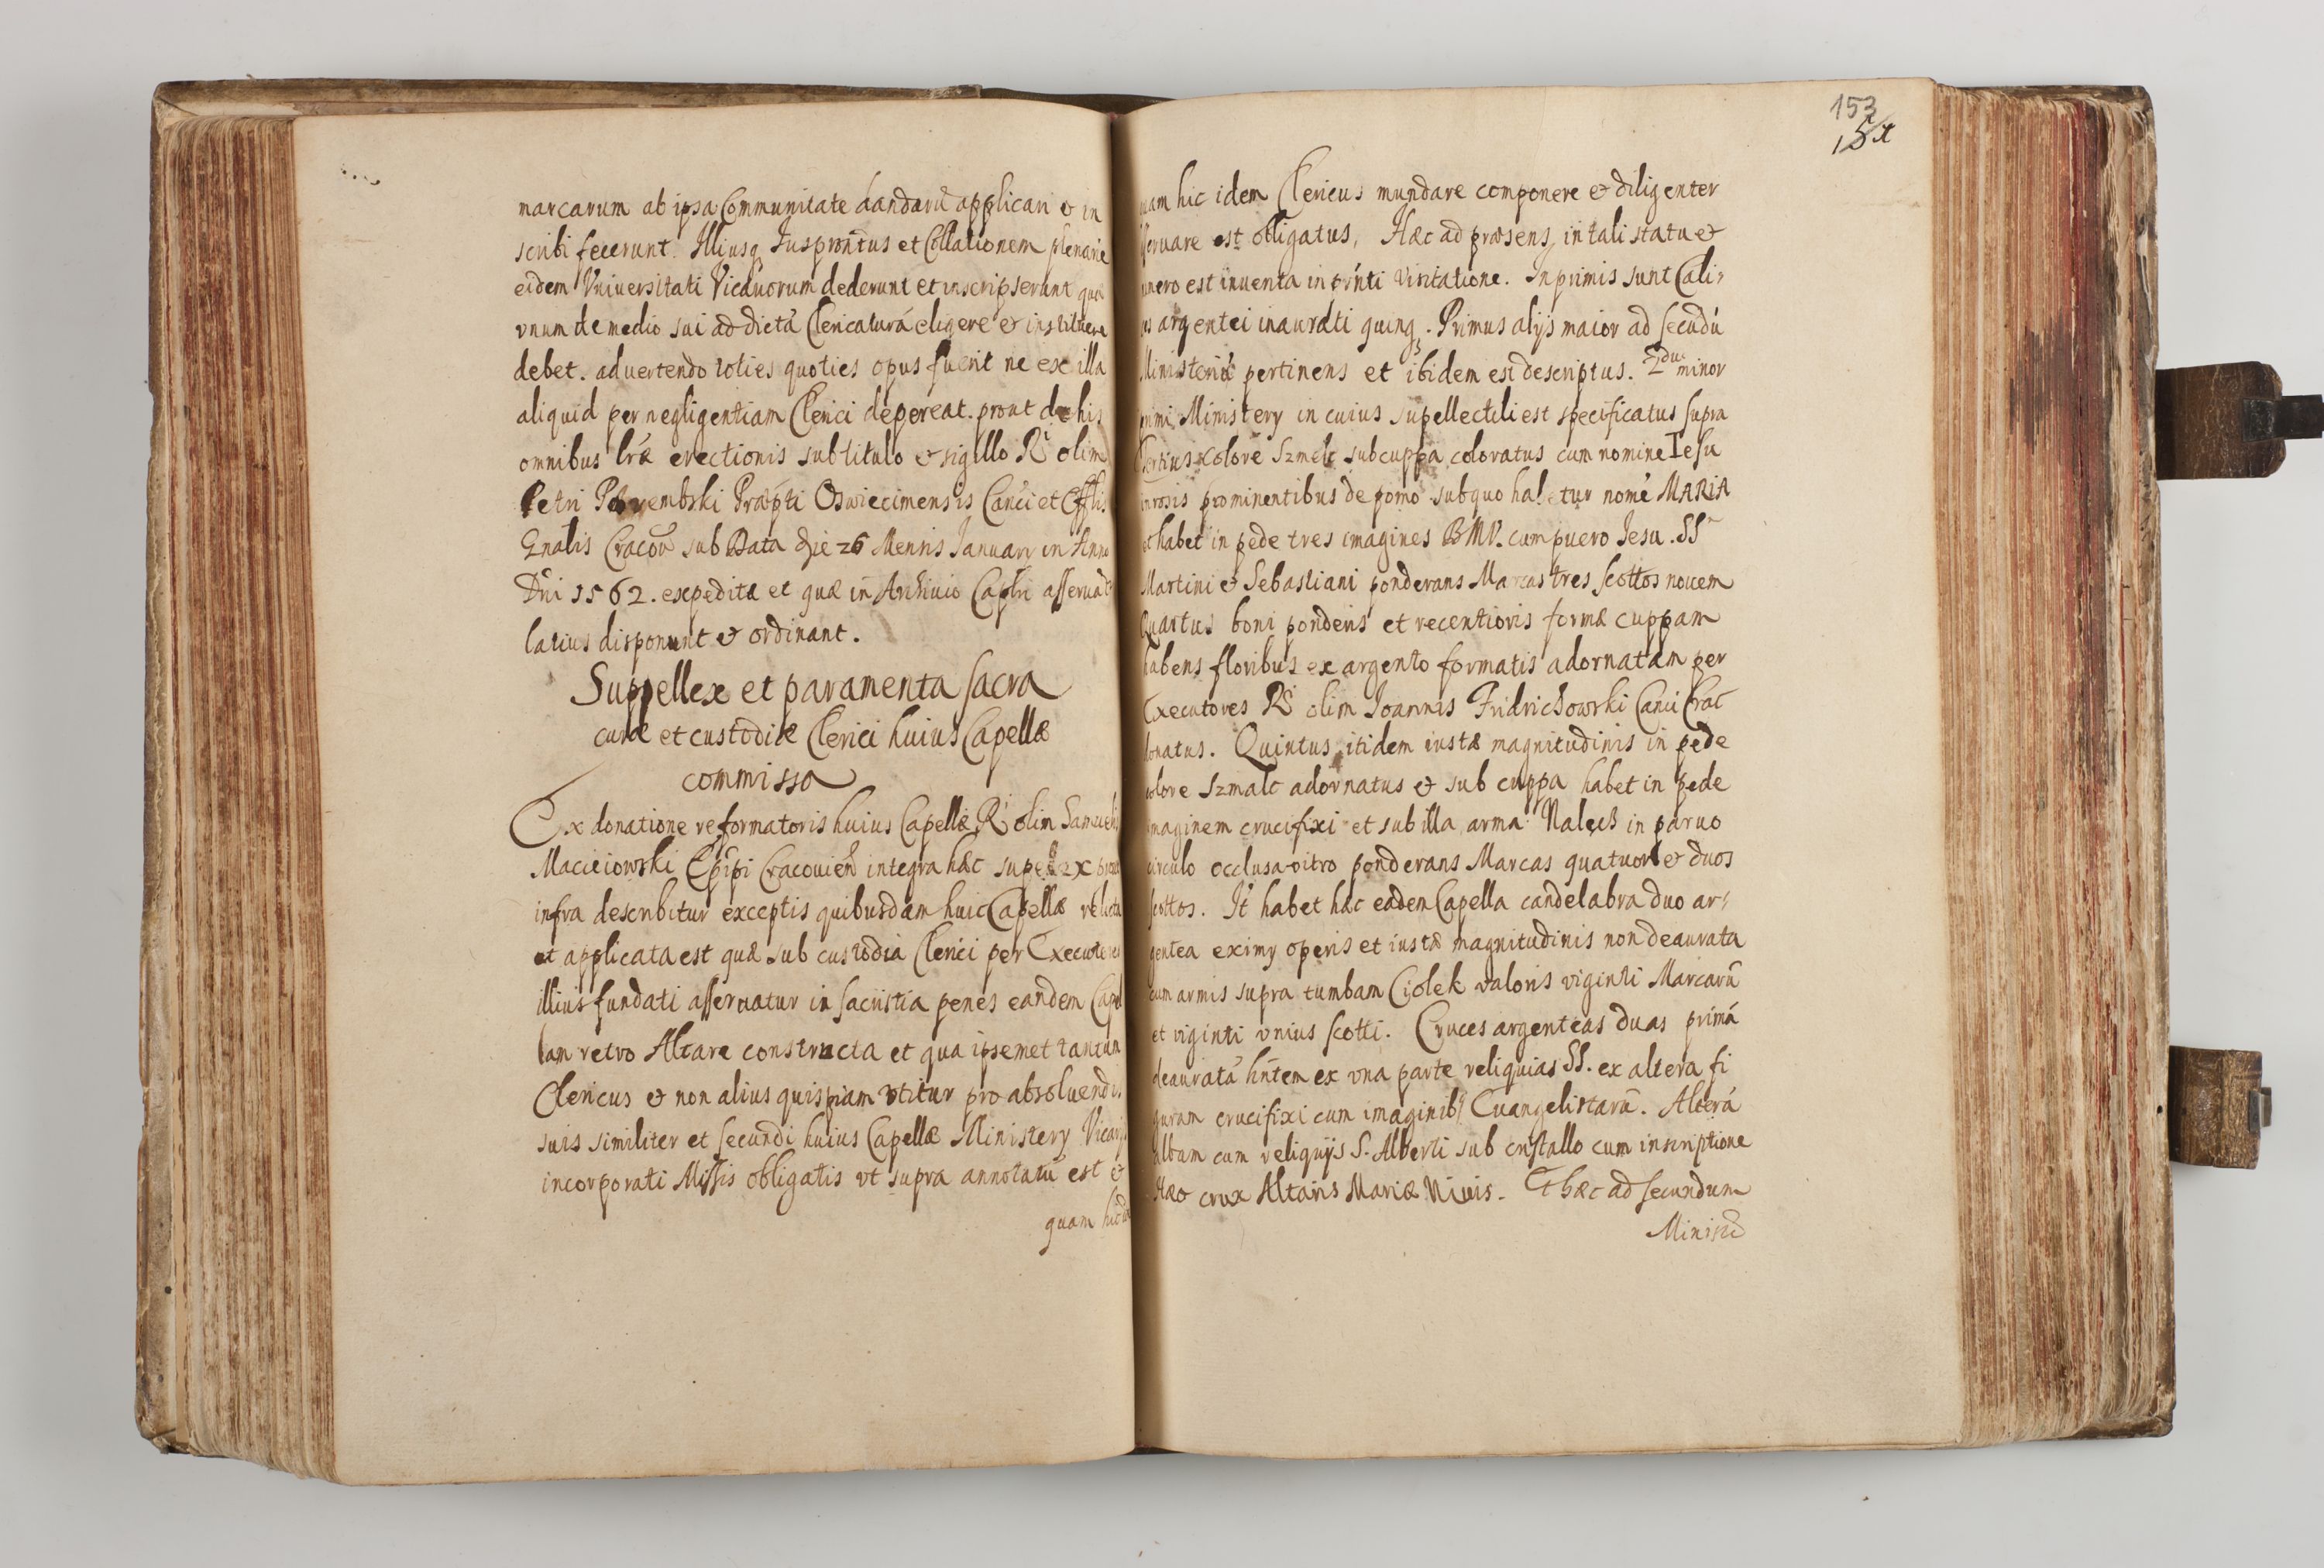 marcarum ab ipsa Communitate dandarũ applicari & in
scribi fecerunt. Illiusq Juspr̃ntus et Collationem plenarie
eidem Vniuersitati Vicariorum dederunt et inscripserunt quæ
vnum de medio sui ad dictá Clericaturá eligere & instituere
debet. aduertendo toties quoties opus fuerit ne ex illa
aliquid per negligentiam Clerici depereat. prout de his
omnibus lr̃æ erectionis sub titulo & sigillo Rdi olim
Petri Porembski Præpti Oswiecimensis Canci et Offlis
Gnalis Cracoũ sub Data die 26 Mensis Januarii in Anno
Dñi 1562. expeditæ et quæ in Archiuio Capli asseruãt
latius disponunt & ordinant.
Suppellex et paramenta sacra
curæ et custodiæ Clerici huius Capellæ
commissa
Ex donatione reformatoris huius Capellæ Rdi olim Samuelis
Macieiowski Epipi Cracouień integra hæc supellex prout
infra describitur exceptis quibusdam huic Capellæ relicta
et applicata est quæ sub custodia Clerici per Executores
illius fundati asseruatur in sacristia penes eandem Capel
lam retro Altare constructa et qua ipsemet tantum
Clericus & non alius quispiam vtitur pro absoluendis
suis similiter et secundi huius Capellæ Ministerij Vicarijs
incorporati Missis obligatis vt supra annotatũ est &
quam hic
153
quam hic idem Clericus mundare componere & diligenter
seruare est obligatus, Hæc ad præsens in tali statu &
numero est inuenta in prńti visitatione. Inprimis sunt Cali-
ces argentei inaurati quinq. Primus alijs maior ad secũdũ
Ministeriũ pertinens et ibidem est descriptus. 2dus minor
primi Ministerij in cuius supellectili est specificatus supra
Tertius colore Szmelc sub cuppa coloratus cum nomine Iesu
in rosis prominentibus de pomo sub quo habetur nomẽ MARIA
et habet in pede tres imagines BMV. cum puero Jesu. SS
Martini & Sebastiani ponderans Marcas tres scottos nouem
Quartus boni ponderis et recentioris formæ cuppam
habens floribus ex argento formatis adornatam per
Executores Rdi olim Joannis Fridrichowski Canci Crac
donatus. Quintus itidem iustæ magnitudinis in pede
colore szmalc adornatus & sub cuppa habet in pede
imaginem crucifixi et sub illa arma Nalęcz in paruo
circulo occlusa vitro ponderans Marcas quatuor & duos
scottos. It habet hæc eadem Capella candelabra duo ar-
gentea eximij operis et iustæ magnitudinis non deaurata
cum armis supra tumbam Ciolek valoris viginti Marcarũ
et viginti vnius scotti. Cruces argenteas duas primá
deauratá hñtem ex vna parte reliquias SS. ex altera fi
guram crucifixi cum imaginib9 Euangelistarũ. Alterá
albam cum reliquijs S. Alberti sub cristallo cum inscriptione
Hæc crux Altaris Mariæ Niuis. Et hæc ad secundum
Ministe